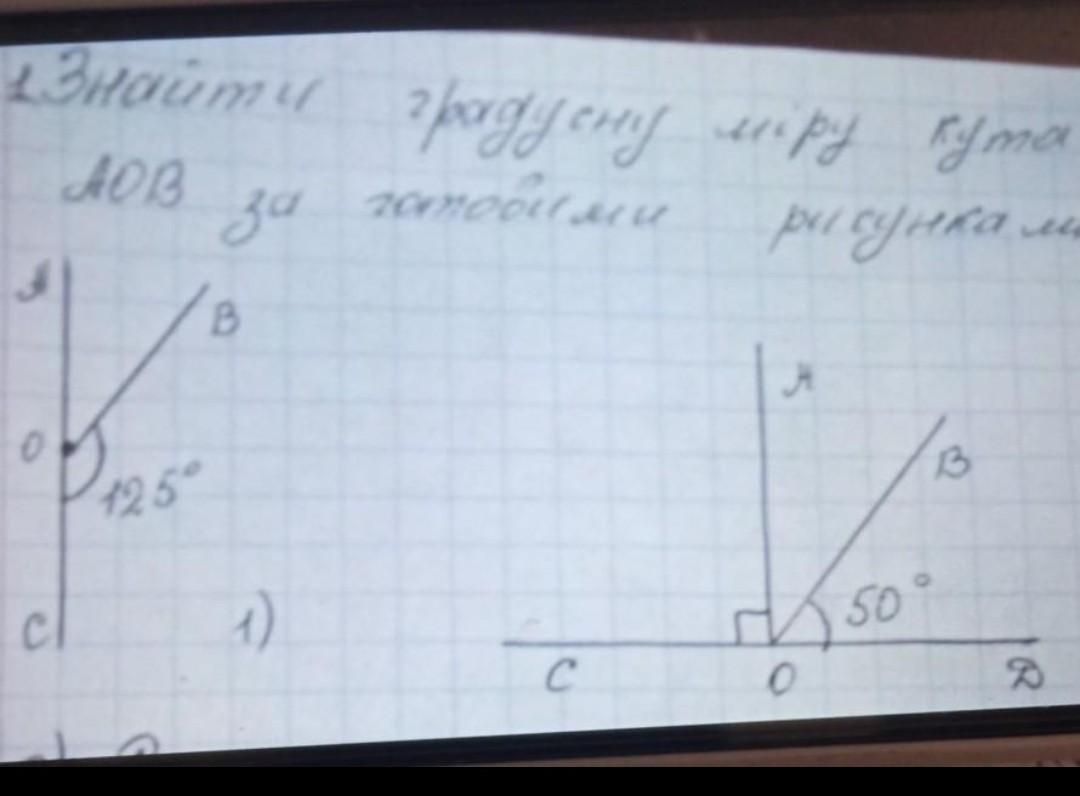 1. Знайти градусну міру кута
АОВ за готовими рисунками
А
В
О
125°
С
1)
А
В
50°
С
О
D